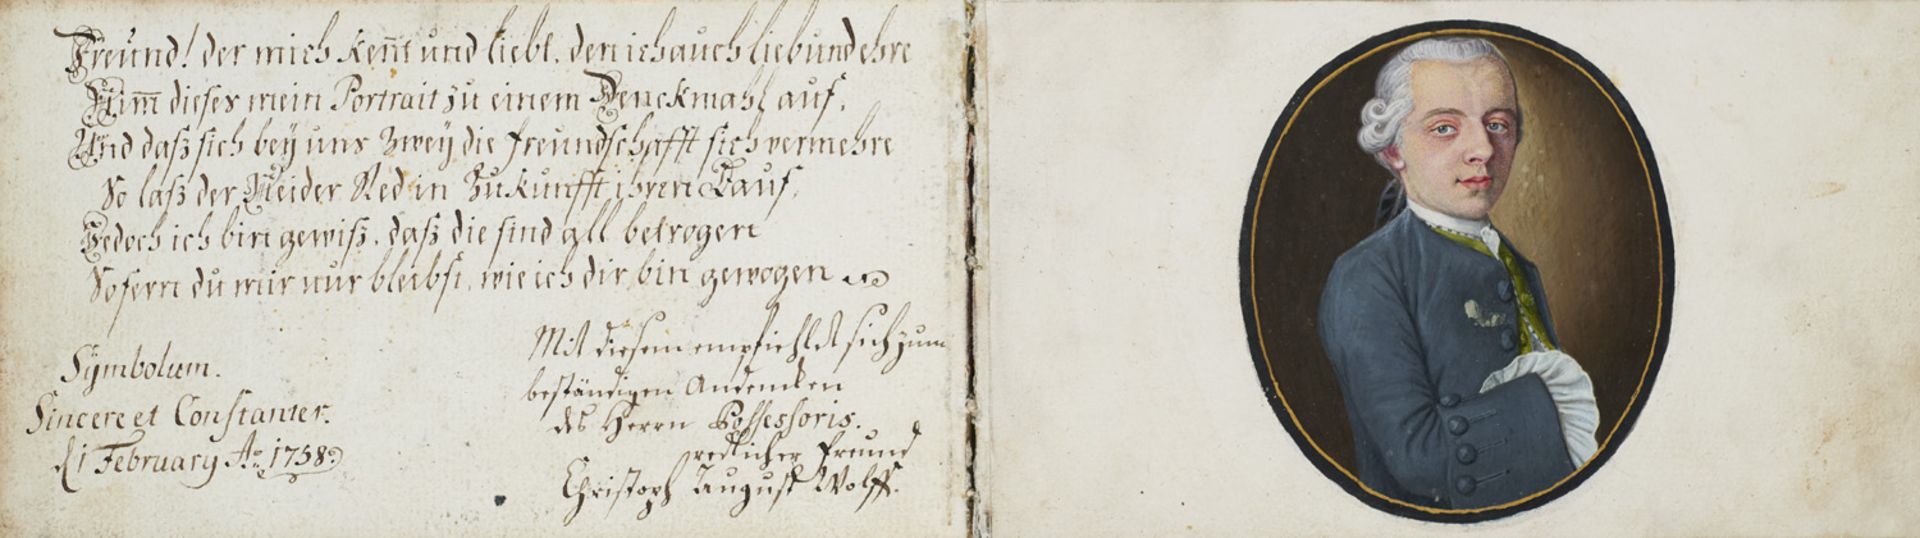 Freund! der mich keñt und liebt, den ich auch lieb und ehre
Nim̅ dieses mein Portrait zu einem Denckmahl auf,
Und daß sich bey uns zwey die Freundschafft sich vermehre
So laß der Neider Red in Zukunfft ihren Lauf,
Jedoch ich bin gewiß, daß die sind all betrogen
Sofern du mir nur bleibst, wie ich dir bin gewogen
Symbolum.
Sincere et Constanter.
d 1 February Ao. 1758.
Mit diesem empfiehlet sich zum
beständigen Andencken
des Herrn Possessoris.
redlicher Freund
Christoph August Wolff.